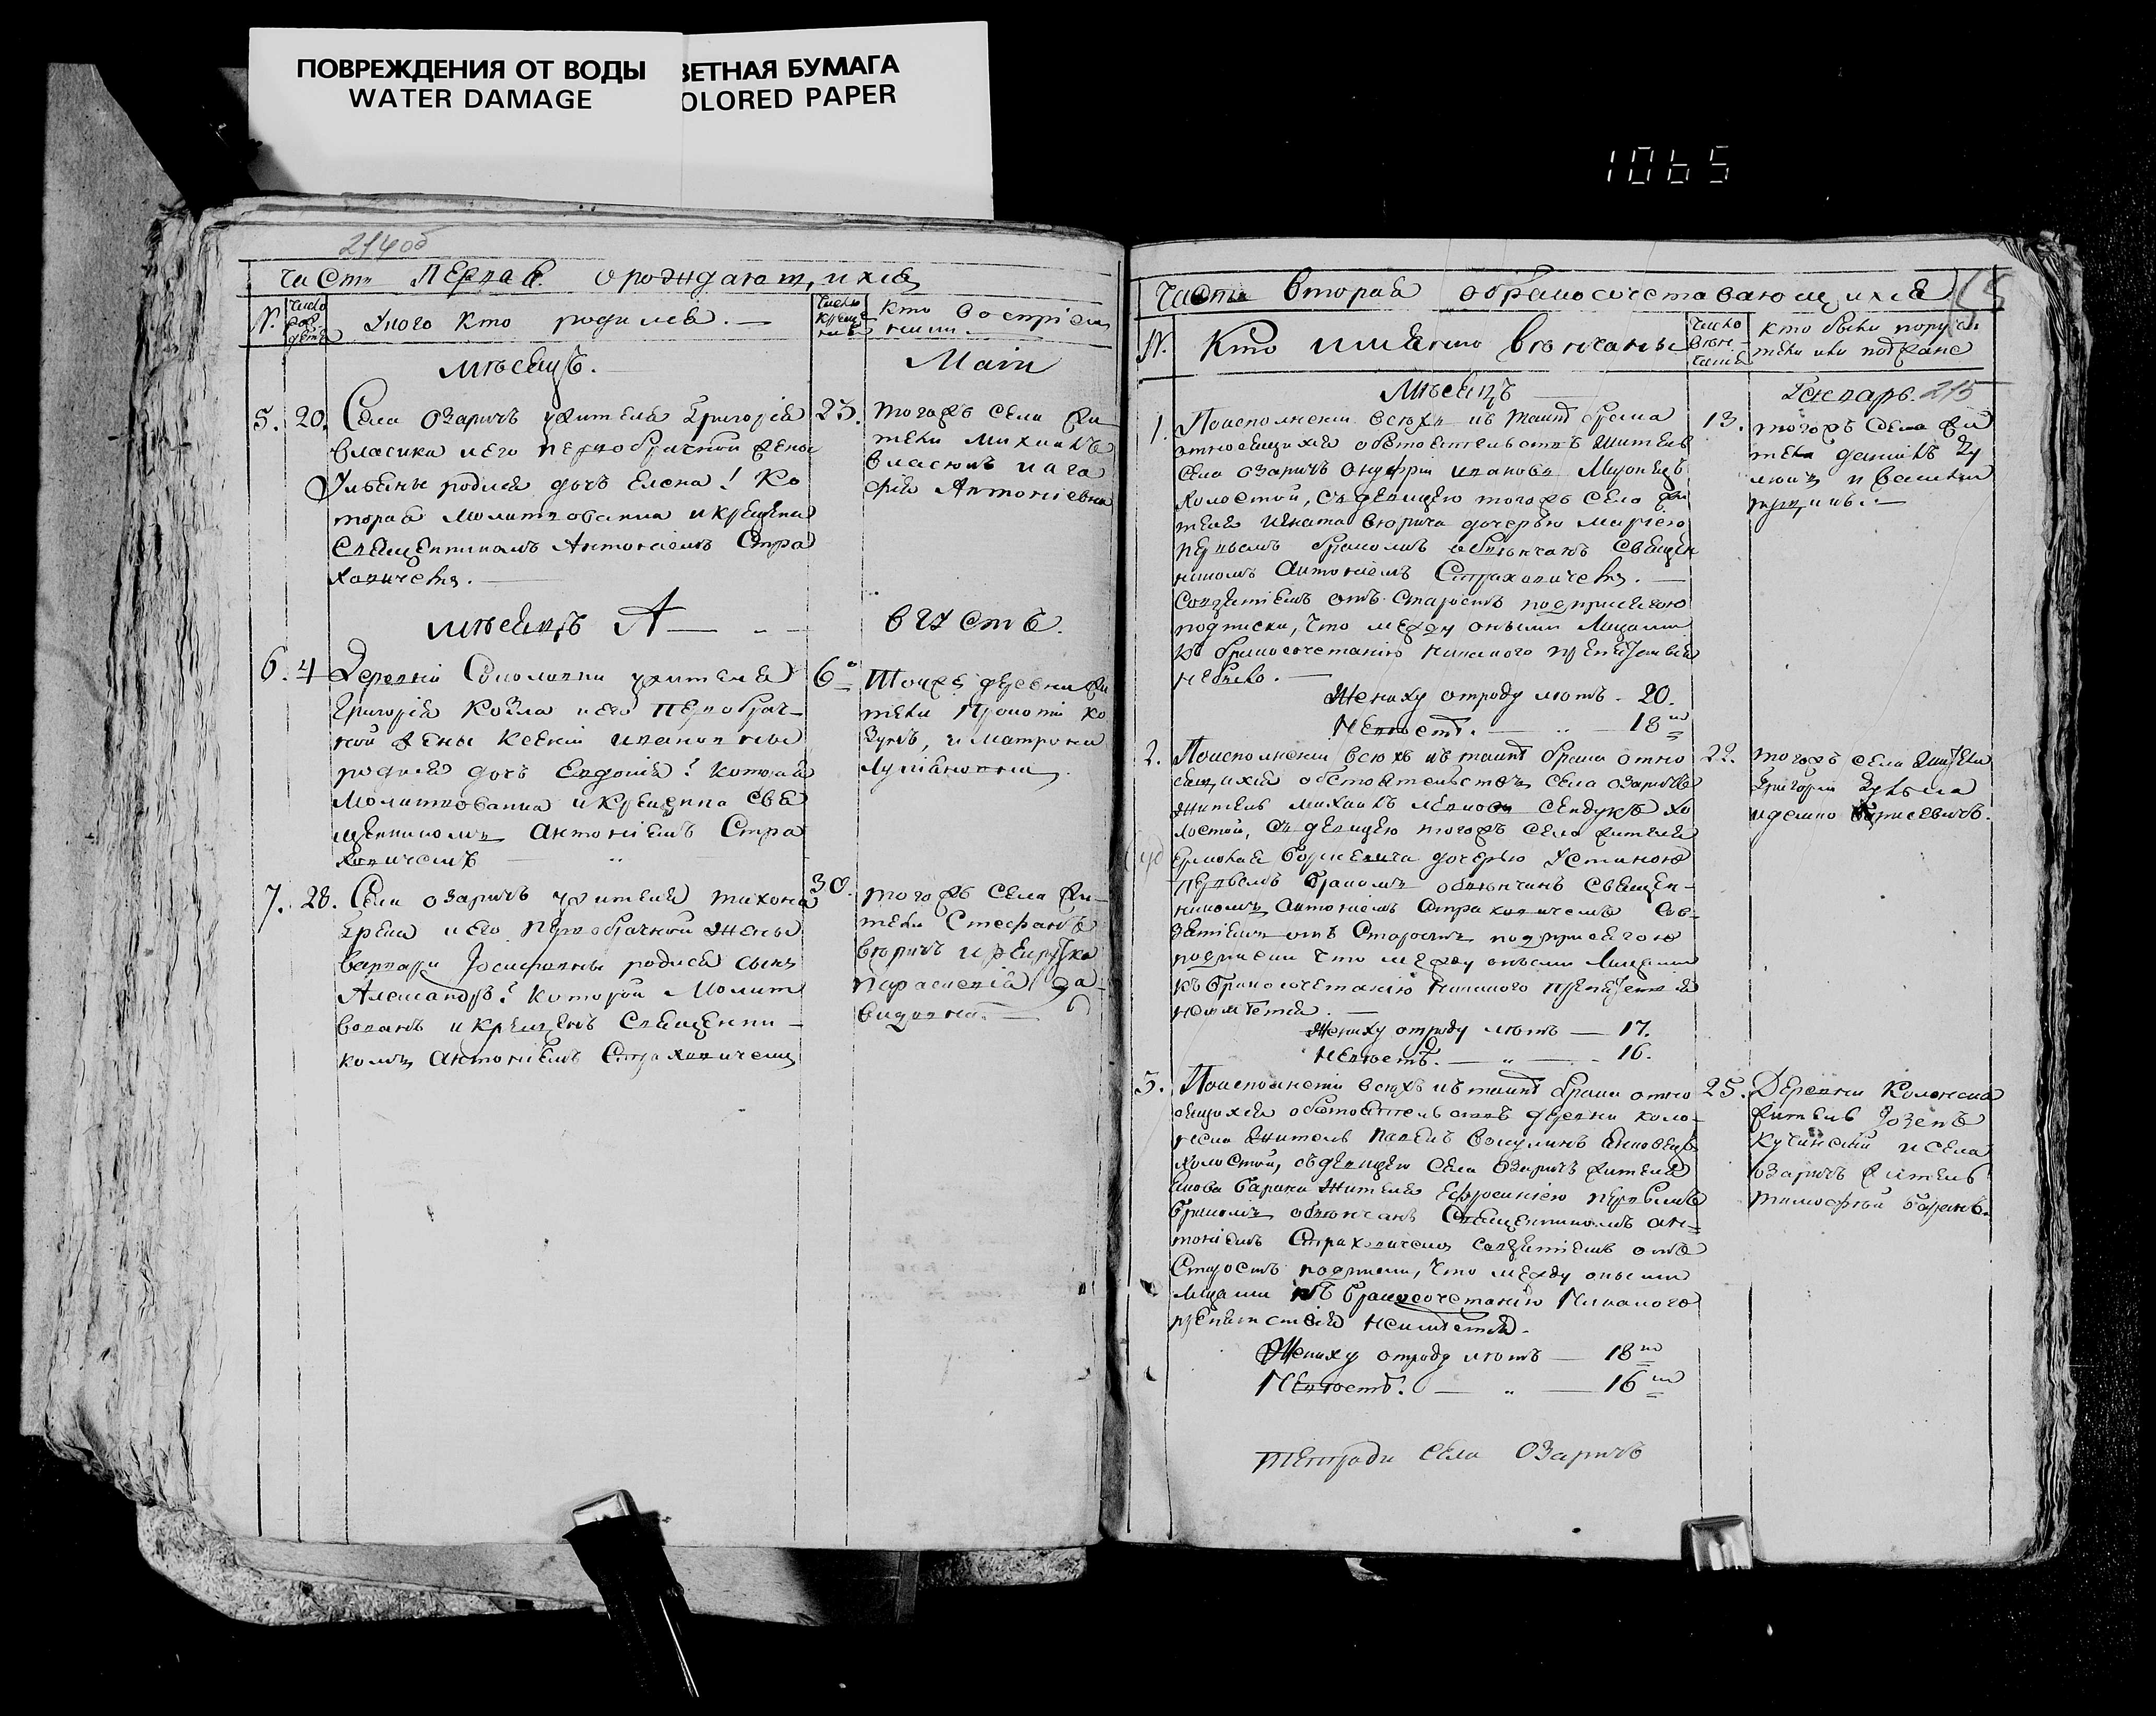 ПОВРЕЖДЕНИЯ ОТ ВОДЫ
WATER DAMAGE
ВЕТНАЯ БУМАГА
OLORED PAPER
1065
214об
Часть Первая о рождающихся
№. Число рождения У кого кто родился. Число крещения Кто восприемники
Мѣсяцъ. Маіи
5. 20. Села Озаричъ жителя Григорія 23.
Власика и его первобрачной жены
Ульяны родися дочь Елена! Ко
торая молитвованна и крещена
Священникомъ Антоніемъ Стра
ховичемъ.
тогожъ села жи
тели Михаилъ
Власюкъ и Ага
фія Антоніевна
Мѣсяцъ А вгустъ.
6. 4 Деревни Соколовки жителя 6
Григорія Козла и его первобрач-
ной жены Ксеніи Ивановны
родися дочь Евдокія! которая
Молитвованна и крещенна Свя
щенникомъ Антоніемъ Стра
ховичемъ
Тойжъ деревни жи
тели Прокопій Ко
и Матрона
7. 28. Села Озаричъ жителя Тихона 30.
и его первобрачной жены
Варвары Іосифовны родися сынъ
Александръ! который Молит
вованъ и крещенъ Священни-
комъ Антоніемъ Страховичемъ
тогожъ села жи-
тели Стефанъ
Вюричъ и
Параскевія Да-
видовна.
Часть Вторая о бракосочетовающихся
№. Кто именно вѣнчаны Число вѣнчанія Кто были поручи
тели или подружіе
Мѣсяцъ Генварь. 215
1. По исполненіи всѣхъ къ таинѣ брака 13.
относящихся обстоятельствъ житель
села Озаричъ Онуфрій Ивановъ
холостой, съ дѣвицею тогожъ села жи
теля Игната Вюрича дочерью Маріею
первымъ бракомъ обвѣнчанъ Священ
никомъ Антоніемъ Страховичемъ.
Со взятіемъ отъ старостъ подъ присягою
подписки, что между оными лицами
къ бракосочетанію никакого препятствія
небыло.
Жениху отроду лѣтъ. 20.
Невѣстѣ. 18
тогожъ села жи
тели
и Василій
2. По исполненіи всѣхъ къ таинѣ брака отно 22.
сящихся обстоятельствъ села Озаричъ
житель Михаилъ хо
лостой, съ дѣвицею тогожъ села жителя
Ермолая Борисевича дочерью Устиною
первымъ бракомъ обвѣнчанъ Священ-
никомъ Антоніемъ Страховичемъ Со в-
зятіемъ отъ Старостъ подъ присягою
подписки что между оными Лицами
къ бракосочетанію никакого препятствія
неимѣется.
Жениху отроду лѣтъ — 17.
Невѣстѣ. — „ — 16.
тогожъ села жители
Григорій
и Борисевичъ.
3. По исполненіи всѣхъ къ таинѣ брака отно 25.
сящихся обстоятельствъ деревни Коло-
неска житель Павелъ
холостой, съ дѣвицею села Озаричъ жителя
Барана Ефросиніею первымъ
бракомъ обвѣнчанъ Священникомъ Ан-
тоніемъ Страховичемъ со взятіемъ отъ
Старостъ подписки, что между оными
Лицами къ бракосочетанію никакого
препятствія неимѣется.
Жениху отроду лѣтъ — 18
Невѣстѣ. — „ — 16
Деревни
житель
и села
Озаричъ житель
Тимофей Баранъ.
Тетради села Озаричъ